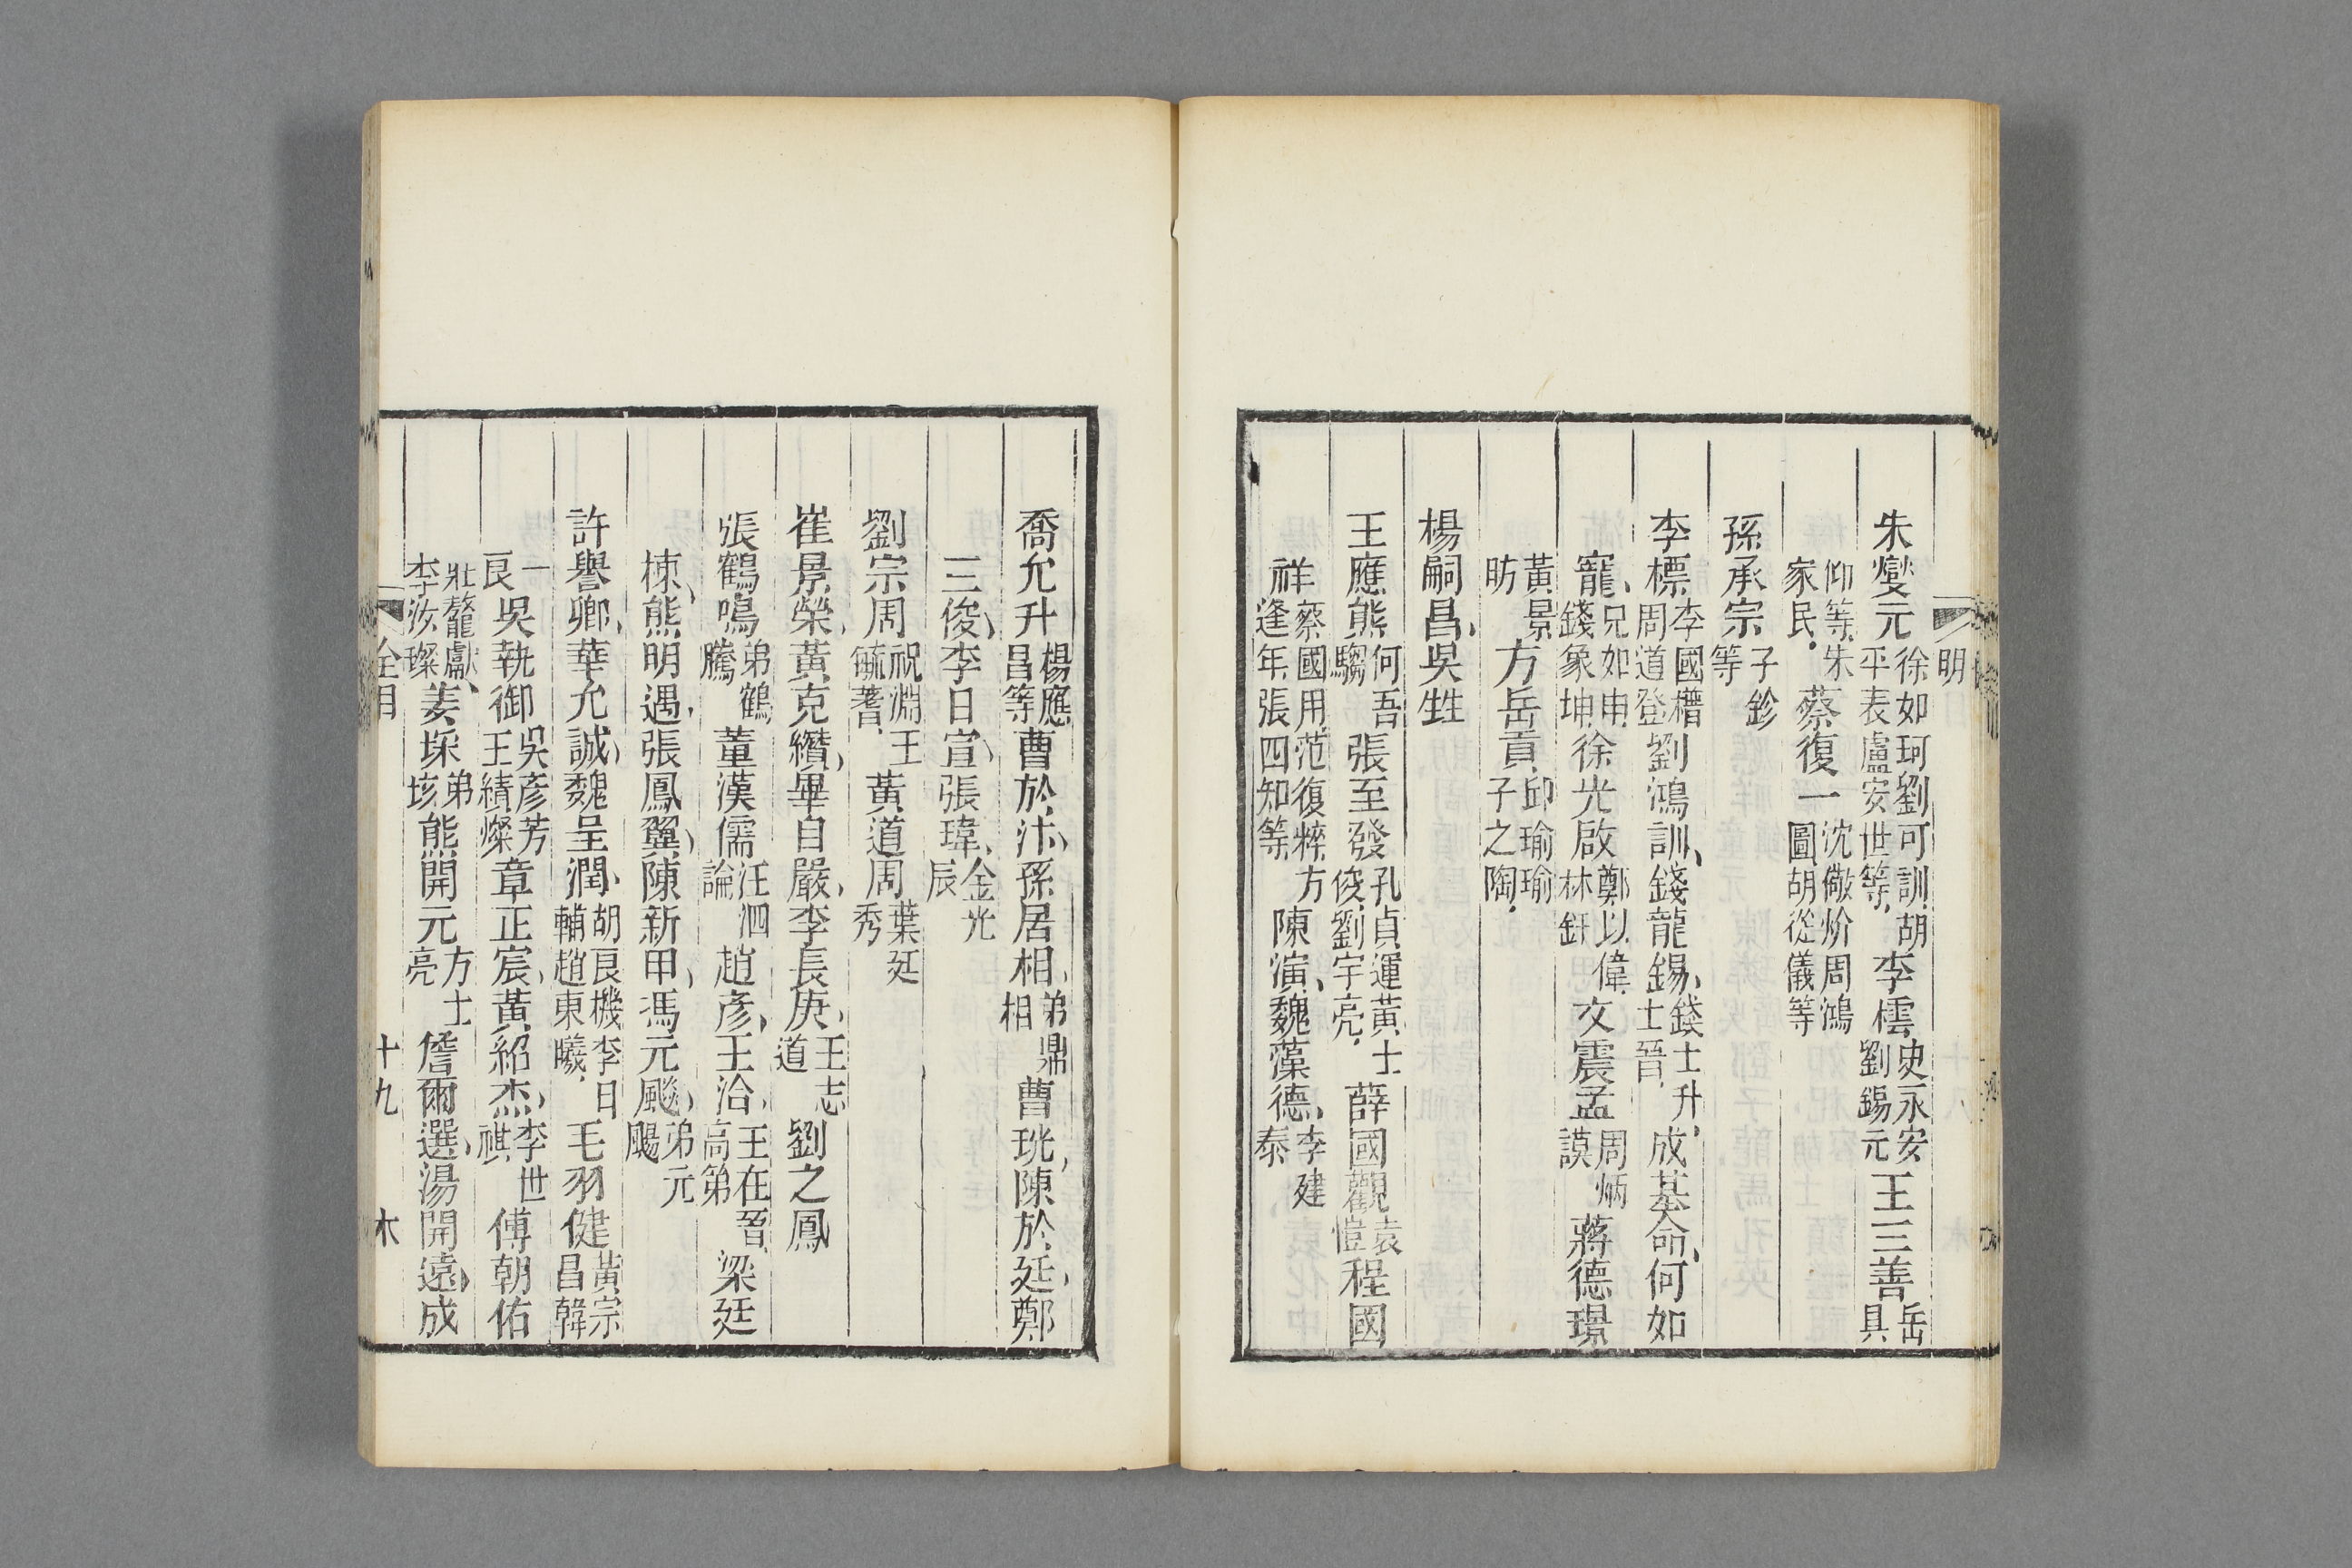 明
朱燮元徐如珂劉可訓胡平表盧安世等李橒史永安劉錫元王三善岳具
仰等朱家民蔡復一沈儆炌周鴻圖胡從儀等
孫承宗子鉁等
李標李國𣚴周道登劉鴻訓錢龍錫錢士升士晉成基命何如
寵兄如申錢象坤徐光啟鄭以偉林釬文震孟周炳謨蔣德璟
黃景昉方岳貢邱瑜瑜子之陶
楊嗣昌吳甡
王應熊何吾騶張至發孔貞運黃士俊劉宇亮薛國觀袁愷程國
祥蔡國用范復粹方逢年張四知等陳演魏藻德李建泰
喬允升楊應昌等曹於汴孫居相弟鼎相曹珖陳於廷鄭
三俊李日宣張瑋金光辰
劉宗周祝淵王毓蓍黃道周葉廷秀
崔景榮黃克纘畢自嚴李長庚王志道劉之鳳
張鶴鳴弟鶴騰董漢儒汪泗論趙彥王洽王在晉高第梁廷
棟熊明遇張鳳翼陳新甲馮元飈弟元颺
許譽卿華允誠魏呈潤胡良機李日輔趙東曦毛羽健黃宗昌韓
一良吳執御吳彥芳王績燦章正宸黃紹杰李世祺傅朝佑
莊鼇獻李汝璨姜埰弟垓熊開元方士亮詹爾選湯開遠成
全目
十九
木